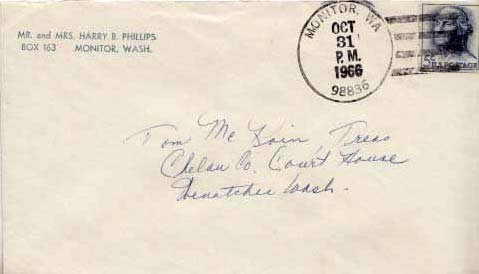 MR. and MRS. HARRY B. PHILLIPS
BOX 163 MONITOR, WASH.
MONITOR, WA
OCT
31
P.M.
1966
98836
5c U.S. POSTAGE
Tom Mc Koin, Treas
Chelan Co. Court House
Wenatchee Wash.